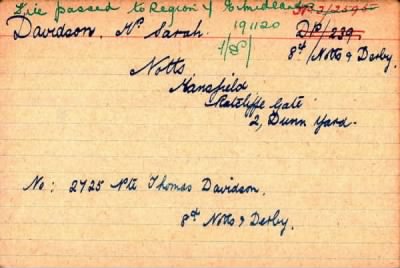 File passed to Region 4 E. Midlands
191120
Davidson, Mrs Sarah.
DP/239
8th Notts & Derby.
Notts
Mansfield
Ratcliffe Gate
2, Dunn Yard.
No: 2725 Pte Thomas Davidson.
8th Notts & Derby.